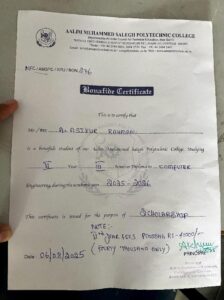 AALIM MUHAMMED SALEGH POLYTECHNIC COLLEGE
Bonafide Certificate
This is to certify that
Mr./Ms. AL ASIKUR RAHMAN
is a bonafide student of our Aalim Muhammed Salegh Polytechnic College Studying
VI Year III Semester Diploma in COMPUTER
Engineering during the academic year 2025 - 2026
This certificate is issued for the purpose of SCHOLARSHIP
NOTE:
YEAR FEES PENDING RS-40000/-
(FOURTY THOUSAND ONLY)
PRINCIPAL
Date: 06/08/2025